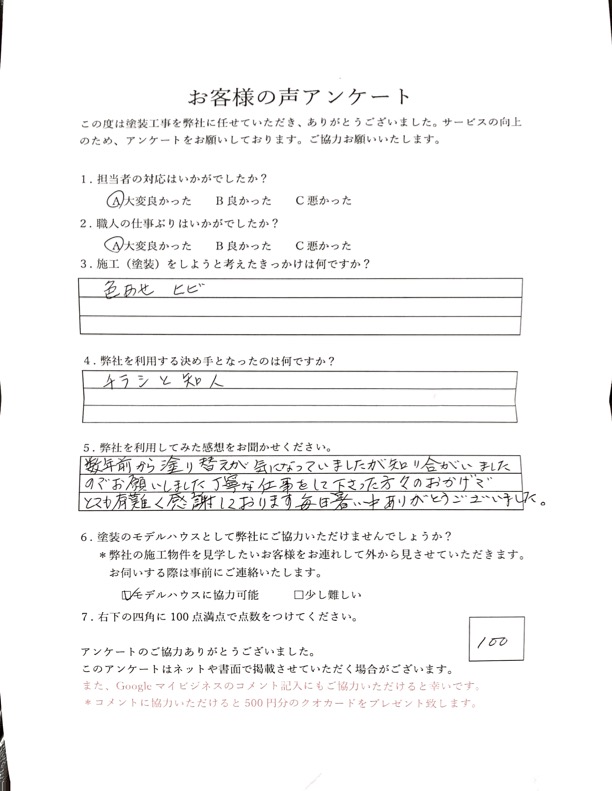 お客様の声アンケート
この度は塗装工事を弊社に任せていただき、ありがとうございました。サービスの向上
のため、アンケートをお願いしております。ご協力お願いいたします。
1．担当者の対応はいかがでしたか？
A大変良かった　B良かった　C悪かった
2．職人の仕事ぶりはいかがでしたか？
A大変良かった　B良かった　C悪かった
3．施工（塗装）をしようと考えたきっかけは何ですか？
色あせ　ヒビ
4．弊社を利用する決め手となったのは何ですか？
チラシと知人
5．弊社を利用してみた感想をお聞かせください。
数年前から塗り替えが気になっていましたが知り合がいました
のでお願いしました丁寧な仕事をして下さった方々のおかげで
とても有難く感謝しております毎日暑い中ありがとうございました。
6．塗装のモデルハウスとして弊社にご協力いただけませんでしょうか？
＊弊社の施工物件を見学したいお客様をお連れして外から見させていただきます。
お伺いする際は事前にご連絡いたします。
☑モデルハウスに協力可能　□少し難しい
7．右下の四角に100点満点で点数をつけてください。
100
アンケートのご協力ありがとうございました。
このアンケートはネットや書面で掲載させていただく場合がございます。
また、Googleマイビジネスのコメント記入にもご協力いただけると幸いです。
＊コメントに協力いただけると500円分のクオカードをプレゼント致します。